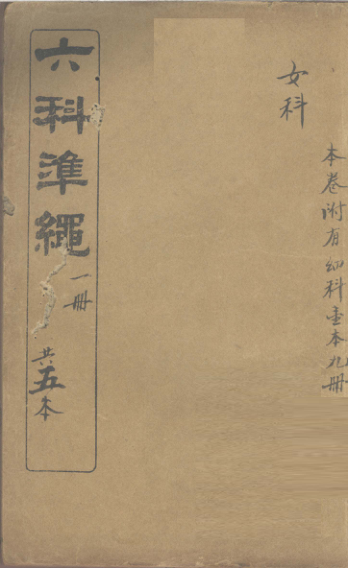 女科
本卷附有幼科壹本九册
六科準繩
一册
共五本